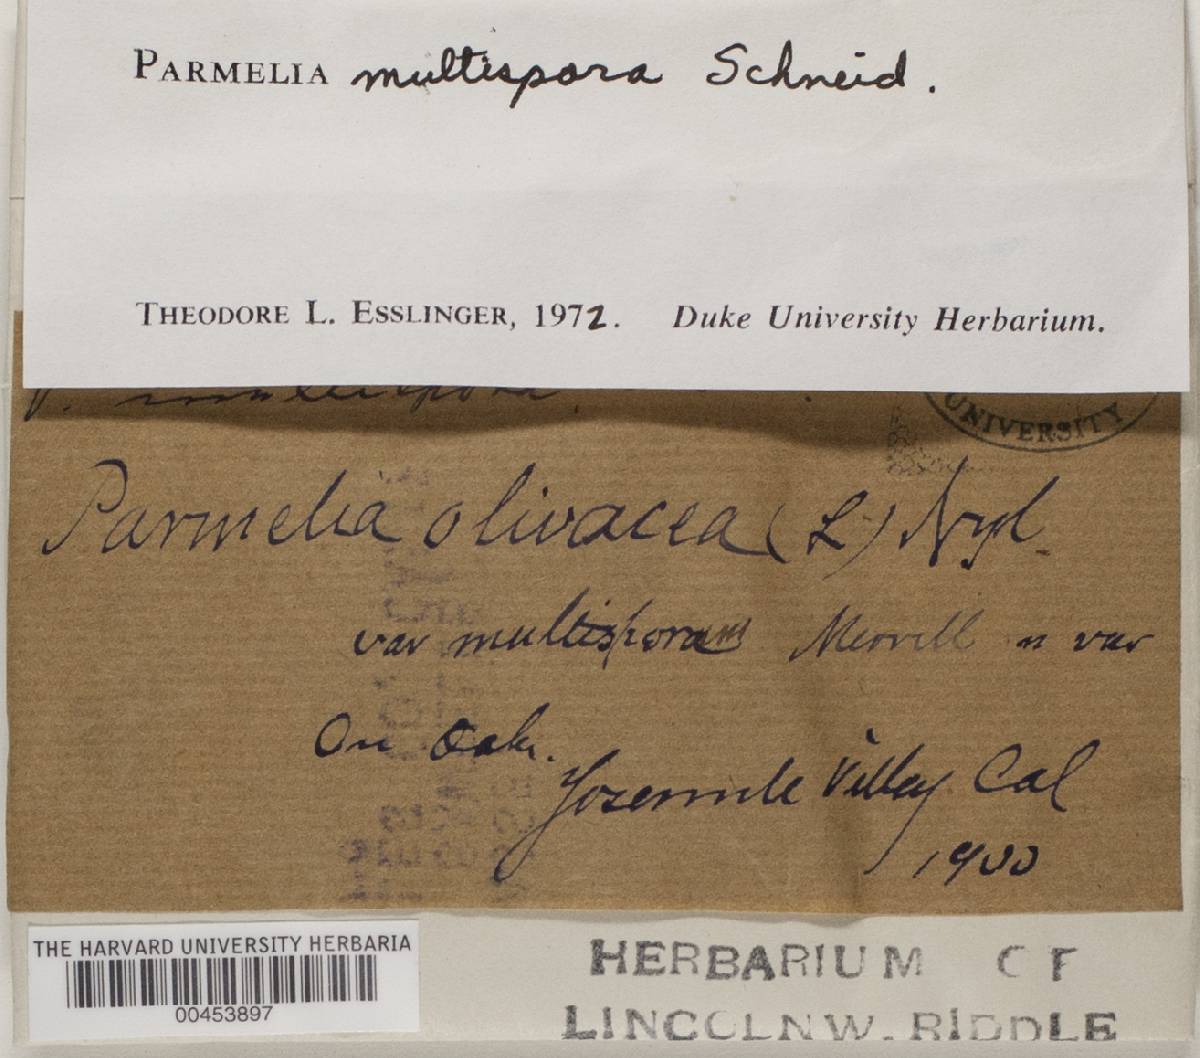 PARMELIA multispora Schneid.
THEODORE L. ESSLINGER, 1972. Duke University Herbarium.
P. multispora.
UNIVERSITY
Parmelia olivacea (L) Nyl.
var multispora Merrill n var
On Oak.
Yosemite Valley Cal
1900
THE HARVARD UNIVERSITY HERBARIA
00453897
HERBARIUM OF
LINCOLN W. RIDDLE